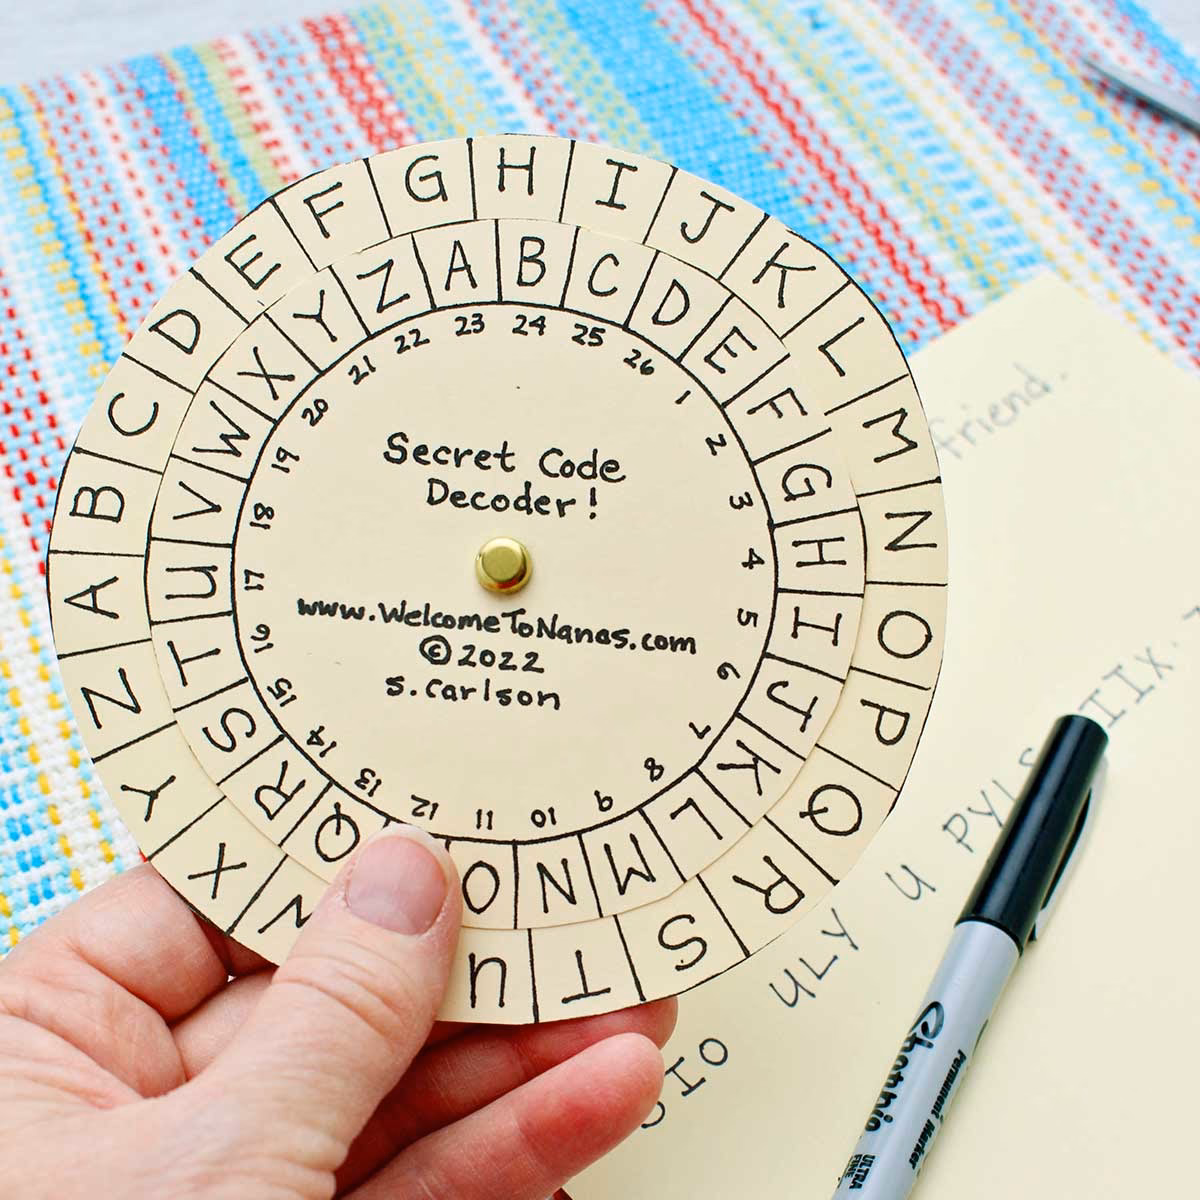 F G H I J K L M N O P Q R S T U
X Y Z A B C D E
Q R S T U V W X Y Z A B C D E F G H I J K L M N O
1 2 3 4 5 6 7 8 9 10 11 12 13 14 15 16 17 18 19 20 21 22 23 24 25 26
Secret Code
Decoder!
www.WelcomeToNanas.com
© 2022
S. Carlson
friend.
ULY U
Permanent Marker
ULTRA
FINE